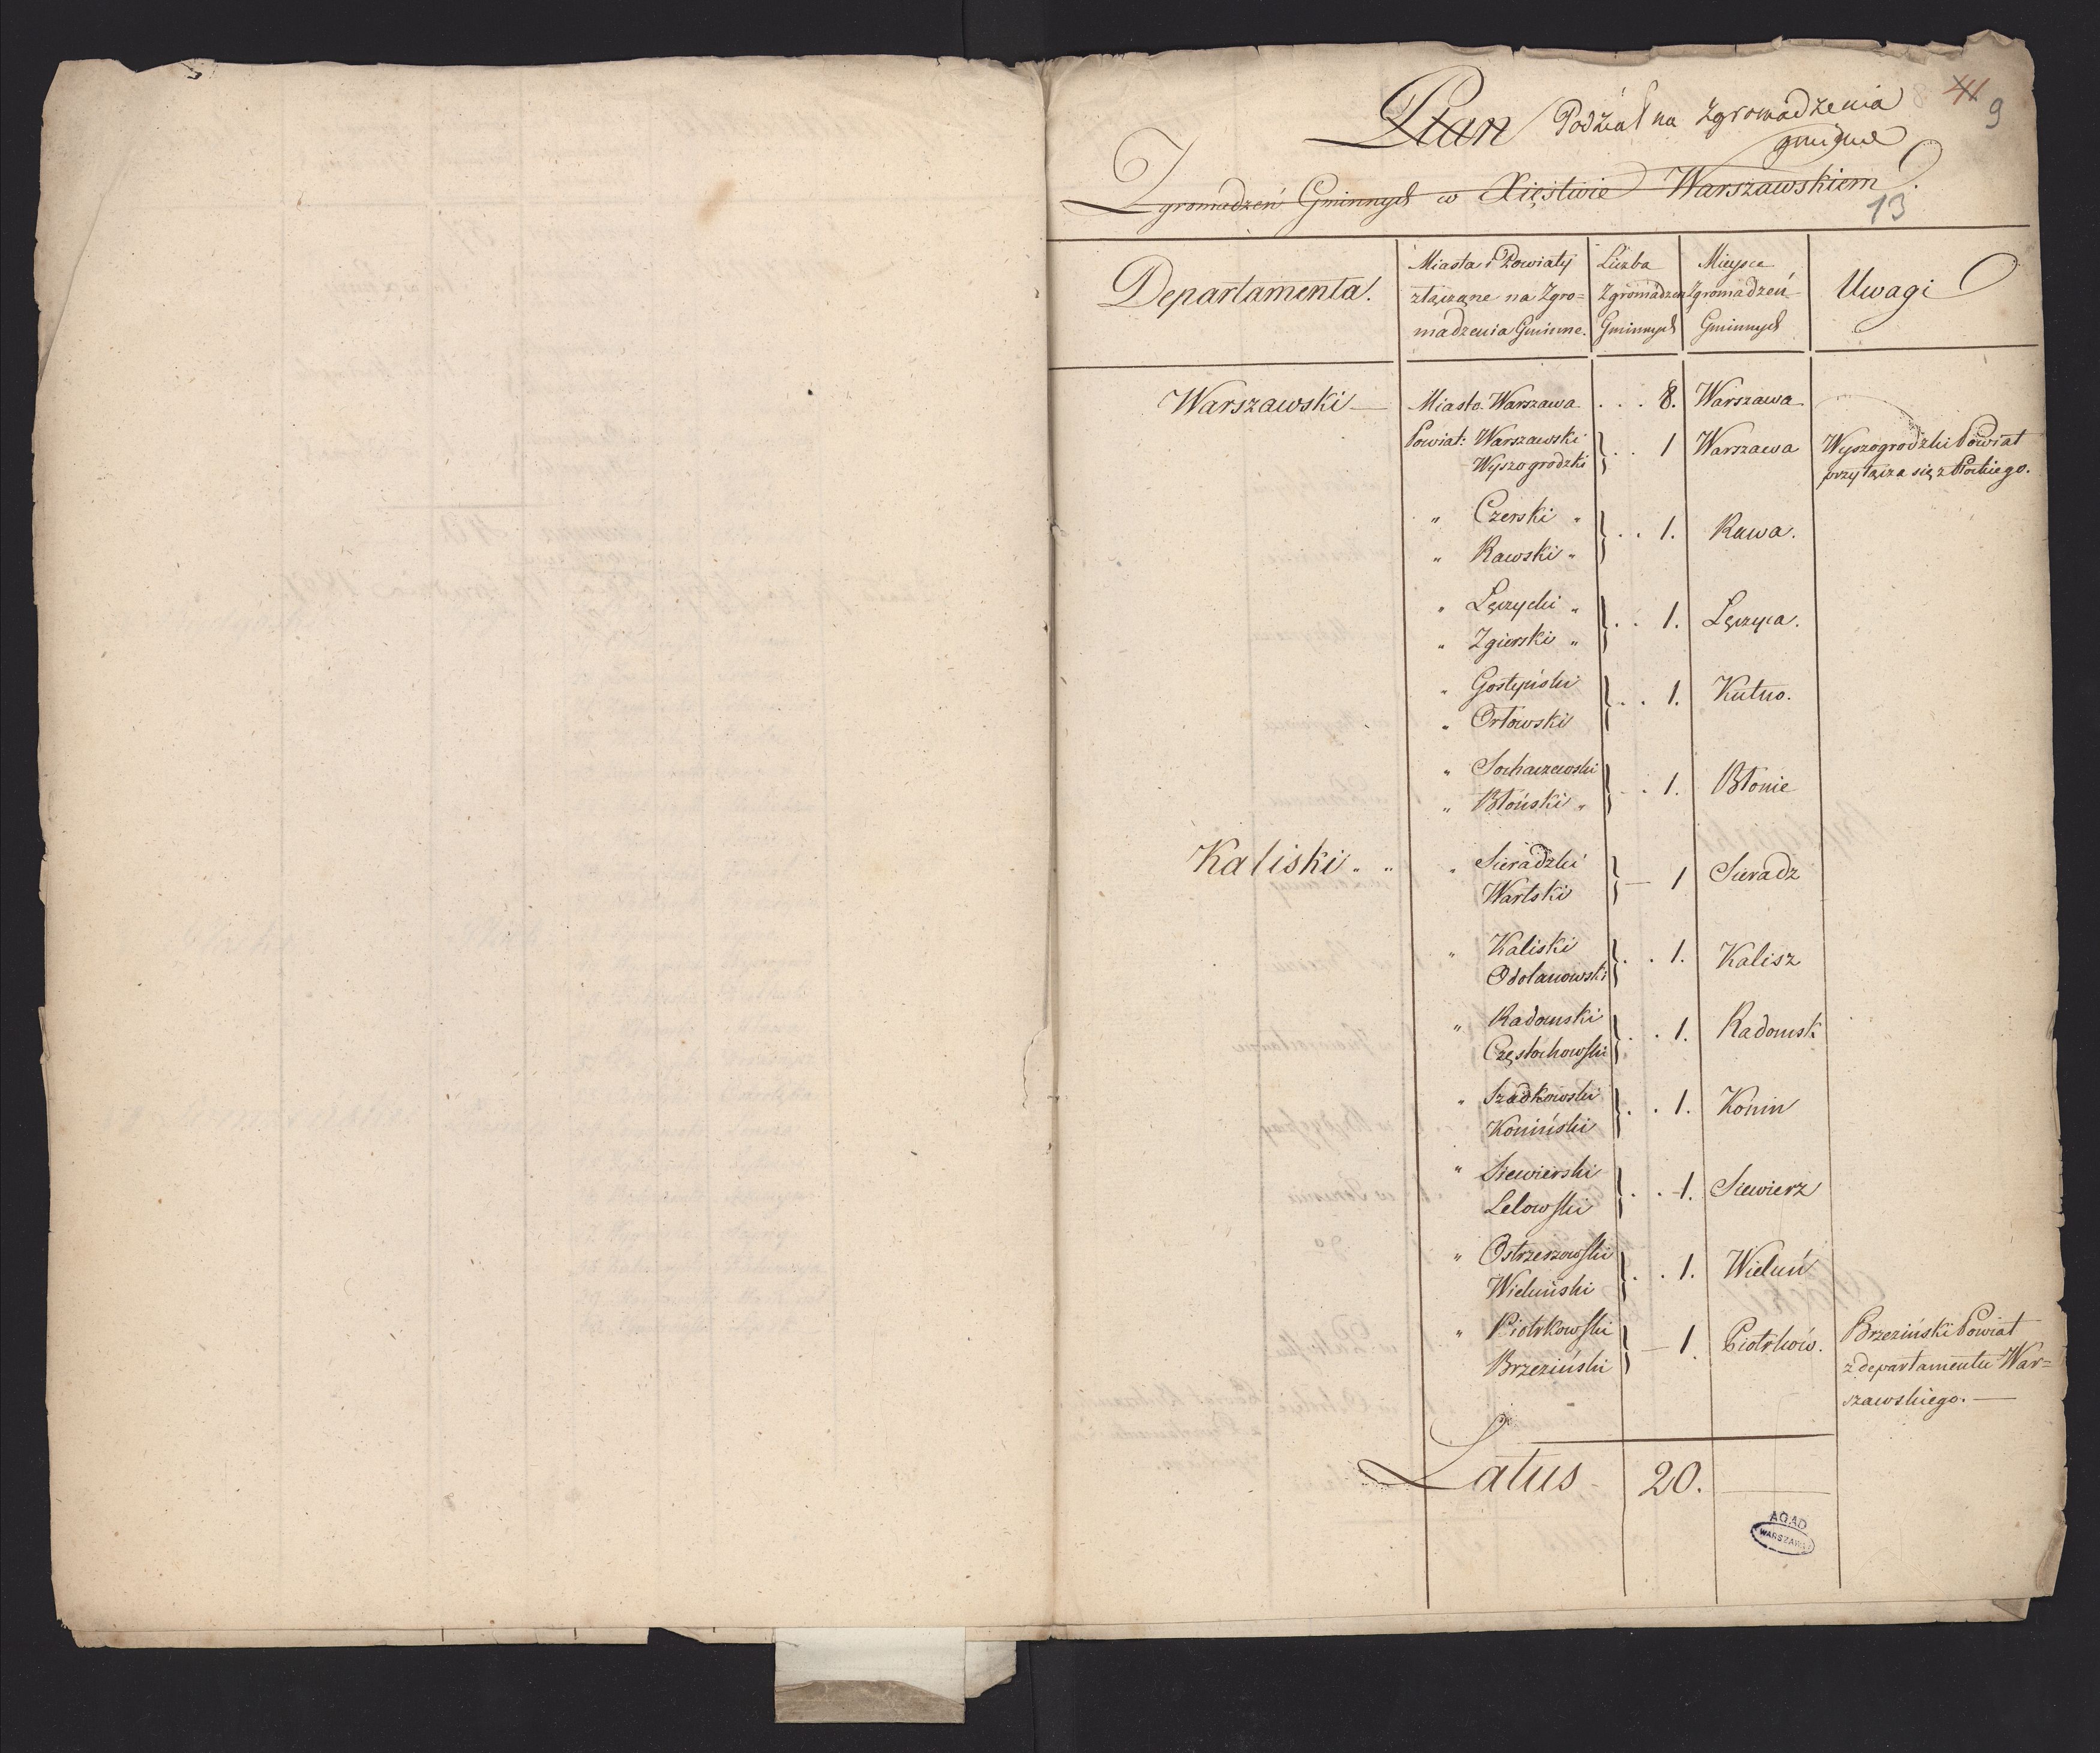 Plan Podział na Zgromadzenia
gminne
Zgromadzeń Gminnych w Xięstwie Warszawskiem.
41
9
13
Departamenta.
Miasta i Powiaty
złączone na Zgro=
madzenia Gminne.
Liczba
Zgromadzeń
Gminnych
Mieysce
Zgromadzeń
Gminnych
Uwagi
Warszawski — Miasto Warszawa . . . 8. Warszawa
Powiat: Warszawski
Wyszogrodzki } . . 1 Warszawa
Wyszogrodzki Powiat
przyłącza się z Płockiego.
„ Czerski „
„ Rawski „ } . . 1. Rawa.
„ Łęczycki „
„ Zgierski „ } . . 1. Łęczyca.
„ Gostyński
„ Orłowski } . . 1. Kutno.
„ Sochaczewski
„ Błoński „ } . . 1. Błonie
Kaliski „ „ „ Sieradzki
Wartski } — 1 Sieradz
„ Kaliski
Odolanowski } . . 1. Kalisz
„ Radomski
Częstochowski } . . 1. Radomsk
„ Szadkowski
Koniński } . . 1. Konin
„ Siewierski
Lelowski } . . 1. Siewierz
„ Ostrzeszowski
Wieluński } . . 1. Wieluń
„ Piotrkowski
Brzeziński } — 1. Piotrków.
Brzeziński Powiat
z departamentu War=
szawskiego. —
Latus 20.
AGAD
WARSZAWA